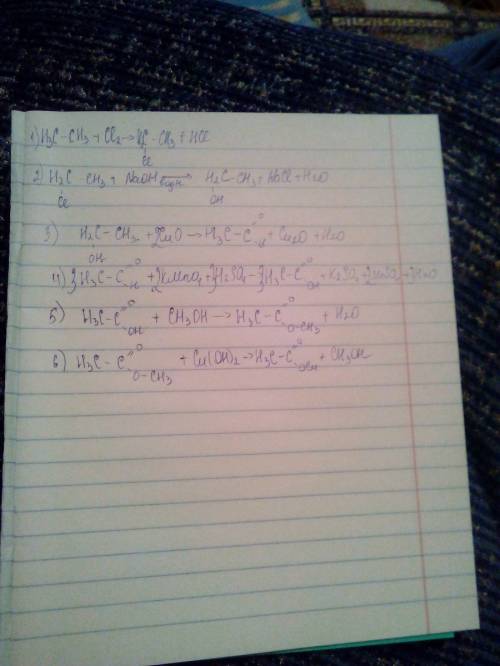 1) H₃C-CH₃ + Cl₂ → H₂C-CH₃ + HCl
Cl
2) H₂C CH₃ + NaOH водн. → H₂C-CH₃ + NaCl + H₂O
Cl OH
3) H₂C-CH₃ + 2CuO → H₃C-C=O H + Cu₂O + H₂O
OH
4) H₃C-C=O H + 2KMnO₄ + 3H₂SO₄ → H₃C-C=O OH + K₂SO₄ + 2MnSO₄ + H₂O
5) H₃C-C=O OH + CH₃OH → H₃C-C=O O-CH₃ + H₂O
6) H₃C-C=O O-CH₃ + Cu(OH)₂ → H₃C-C=O OCu + CH₃OH